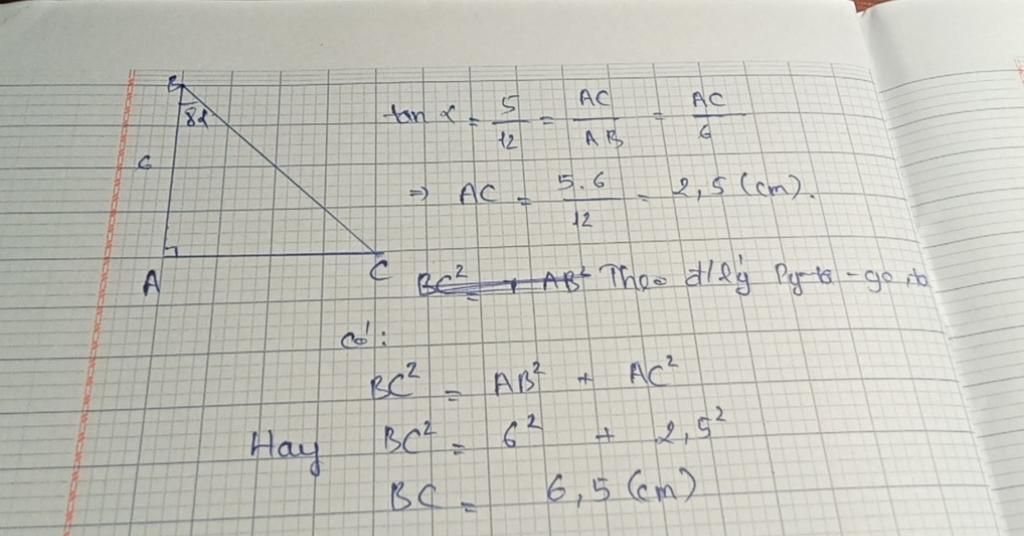 B
α
6
A
C
tan α = 5/12 = AC/AB = AC/6
⇒ AC = 5.6/12 = 2,5 (cm).
Theo đ/lý Py-ta-go, ta
có:
BC² = AB² + AC²
Hay BC² = 6² + 2,5²
BC = 6,5 (cm)